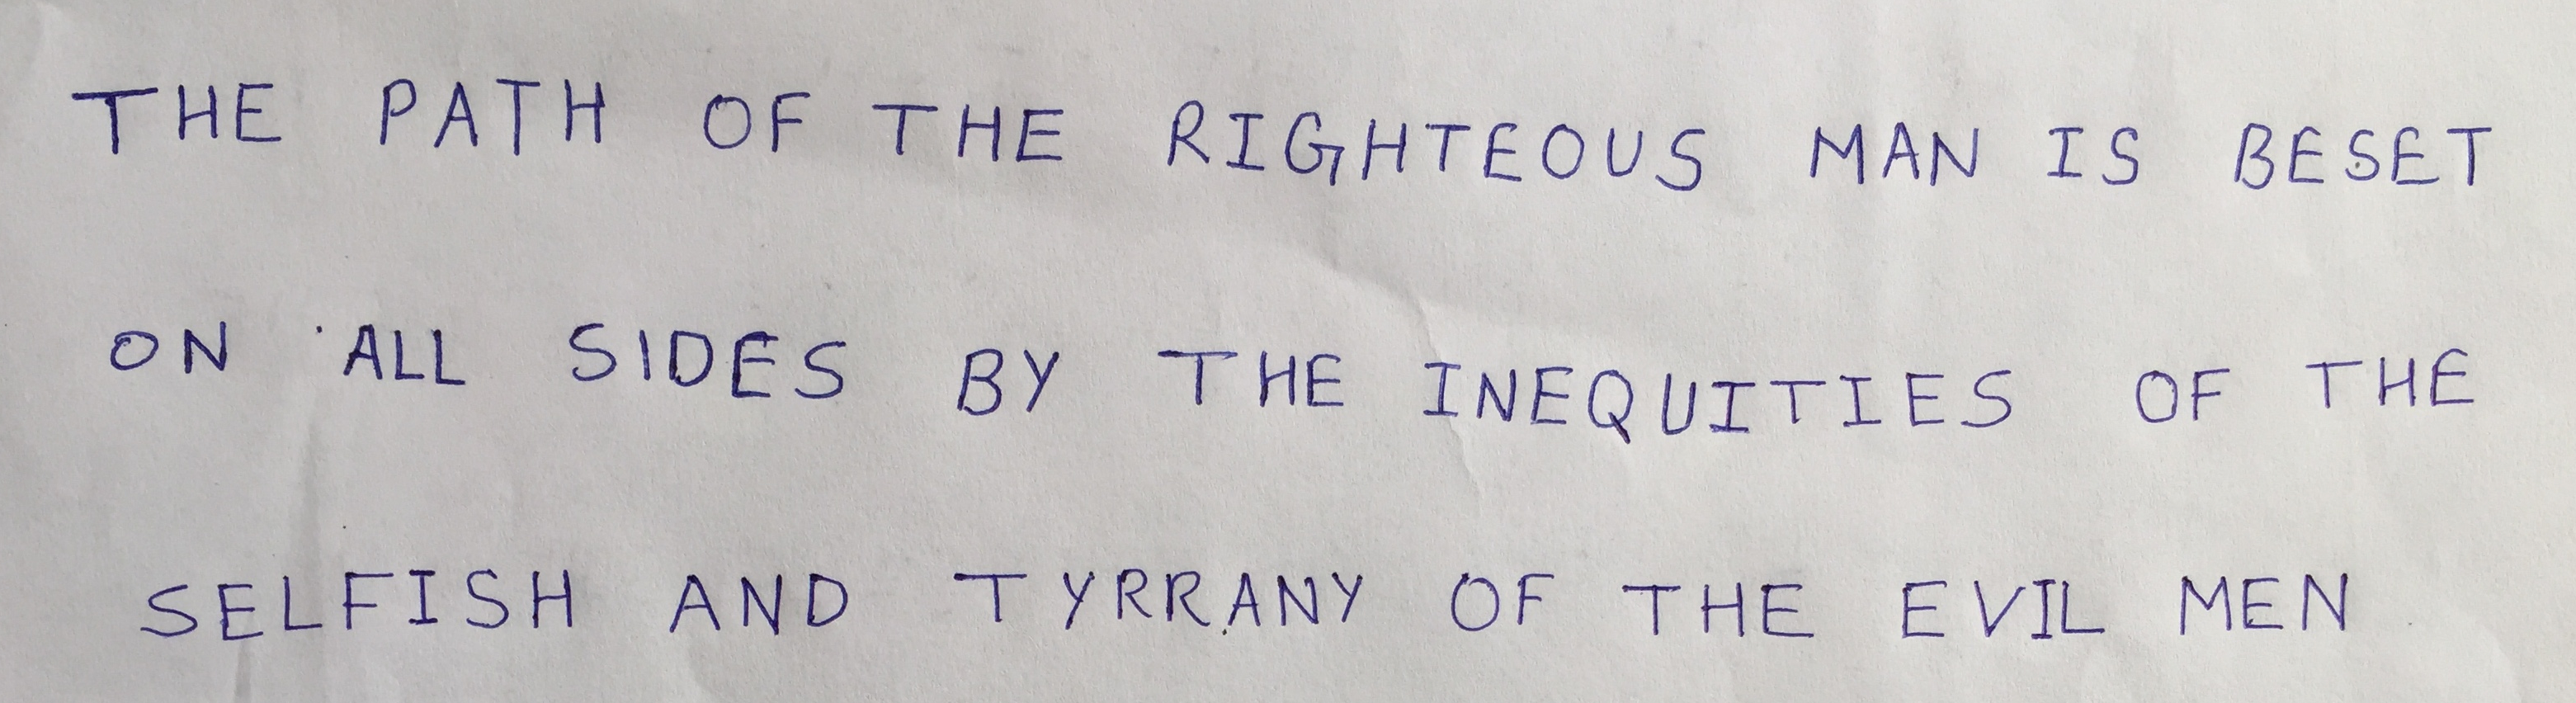 THE PATH OF THE RIGHTEOUS MAN IS BESET
ON ALL SIDES BY THE INEQUITIES OF THE
SELFISH AND TYRRANY OF THE EVIL MEN